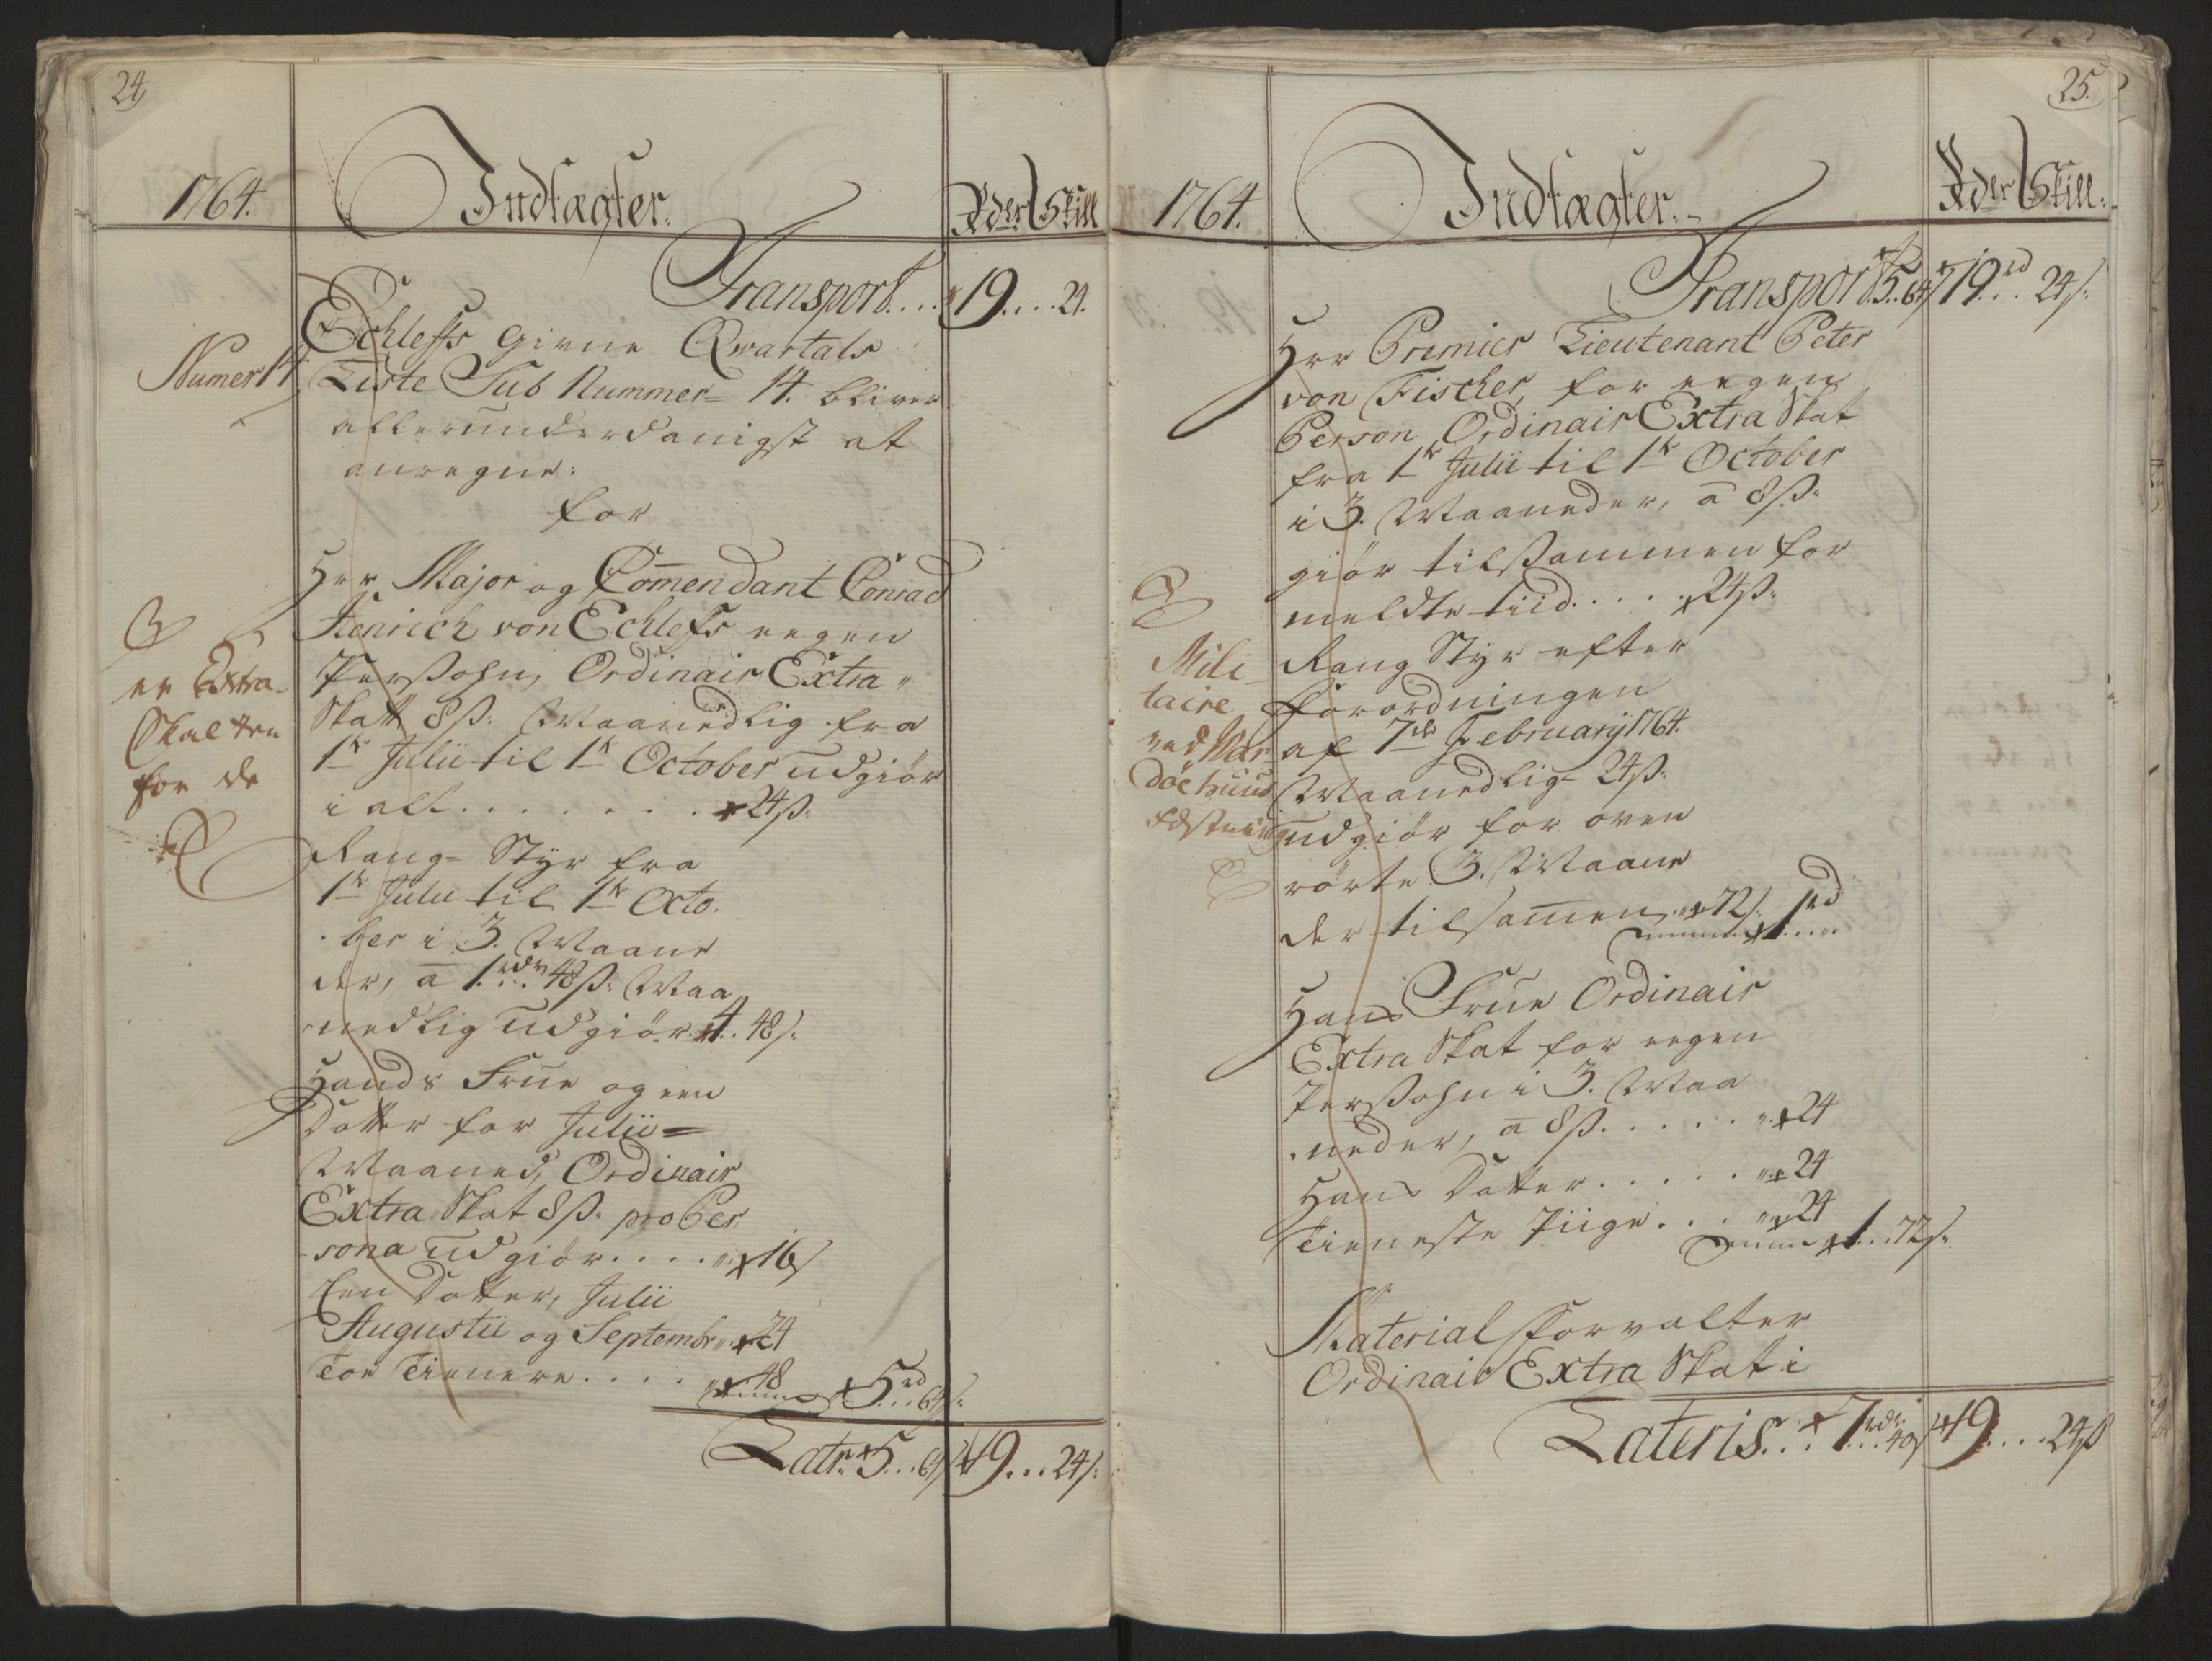 24
1764.
Indtægter.
Rdler Skill
Transport.... 19....24.
Echleffs givne Qvartals
Numer 14
Liste Sub Nummer= 14. bliver
allerunderdanigst at
anregne:
for
Herr Major og Com̅endant Conrad
Henrich von Echleffs eegen
Perßohn, Ordinair Extra
Skatt 8ß: Maanedlig fra
1te Julii til 1te October udgiør
i alt........24ß:
er Extra
Skatten
for de
Rang= Styr fra
1te Julii til 1te Octo.
ber i 3. Maane
der, a 1rdr 48ß: Maa
nedlig udgiør. 4..48ß:
Hands Frue og een
Datter for Julii=
Maaned, Ordinair
Extra Skat 8ß: pro Per
sona udgiør.... 16ß
Een Datter, Julii
Augustii og Septembr. 24
Toe Tienere.... 48
5rd..64ß:
Latr. 5...64ß 19...24ß:
25.
1764.
Indtægter.
Rdler Skill.
Transport 5..64ß 19rd..24ß:
Herr Premier Lieutenant Peter
von Fischer, for eegen
Person Ordinair Extra Skat
fra 1te Julii til 1te October
i 3. Maaneder, a 8ß:
giør tilßammen for
meldte tiid..... 24ß:
Mili
taire
ved War
døehuus
Fæstning
Rang Styr efter
Forordningen
af 7de February 1764.
Maanedlig 24ß:
udgiør for oven
rørte 3. Maane
der tilsam̅en, 72ß: 1rd
Hans Frue Ordinair
Extra Skat for eegen
Perßohn i 3. Maa
neder, a 8ß...... 24
Hans Datter..... 24
Tieneste Piige... 24
1...72ß:
Material Forvalter
Ordinair Extra Skat i
Lateris... 7rdr..40ß 19....24ß